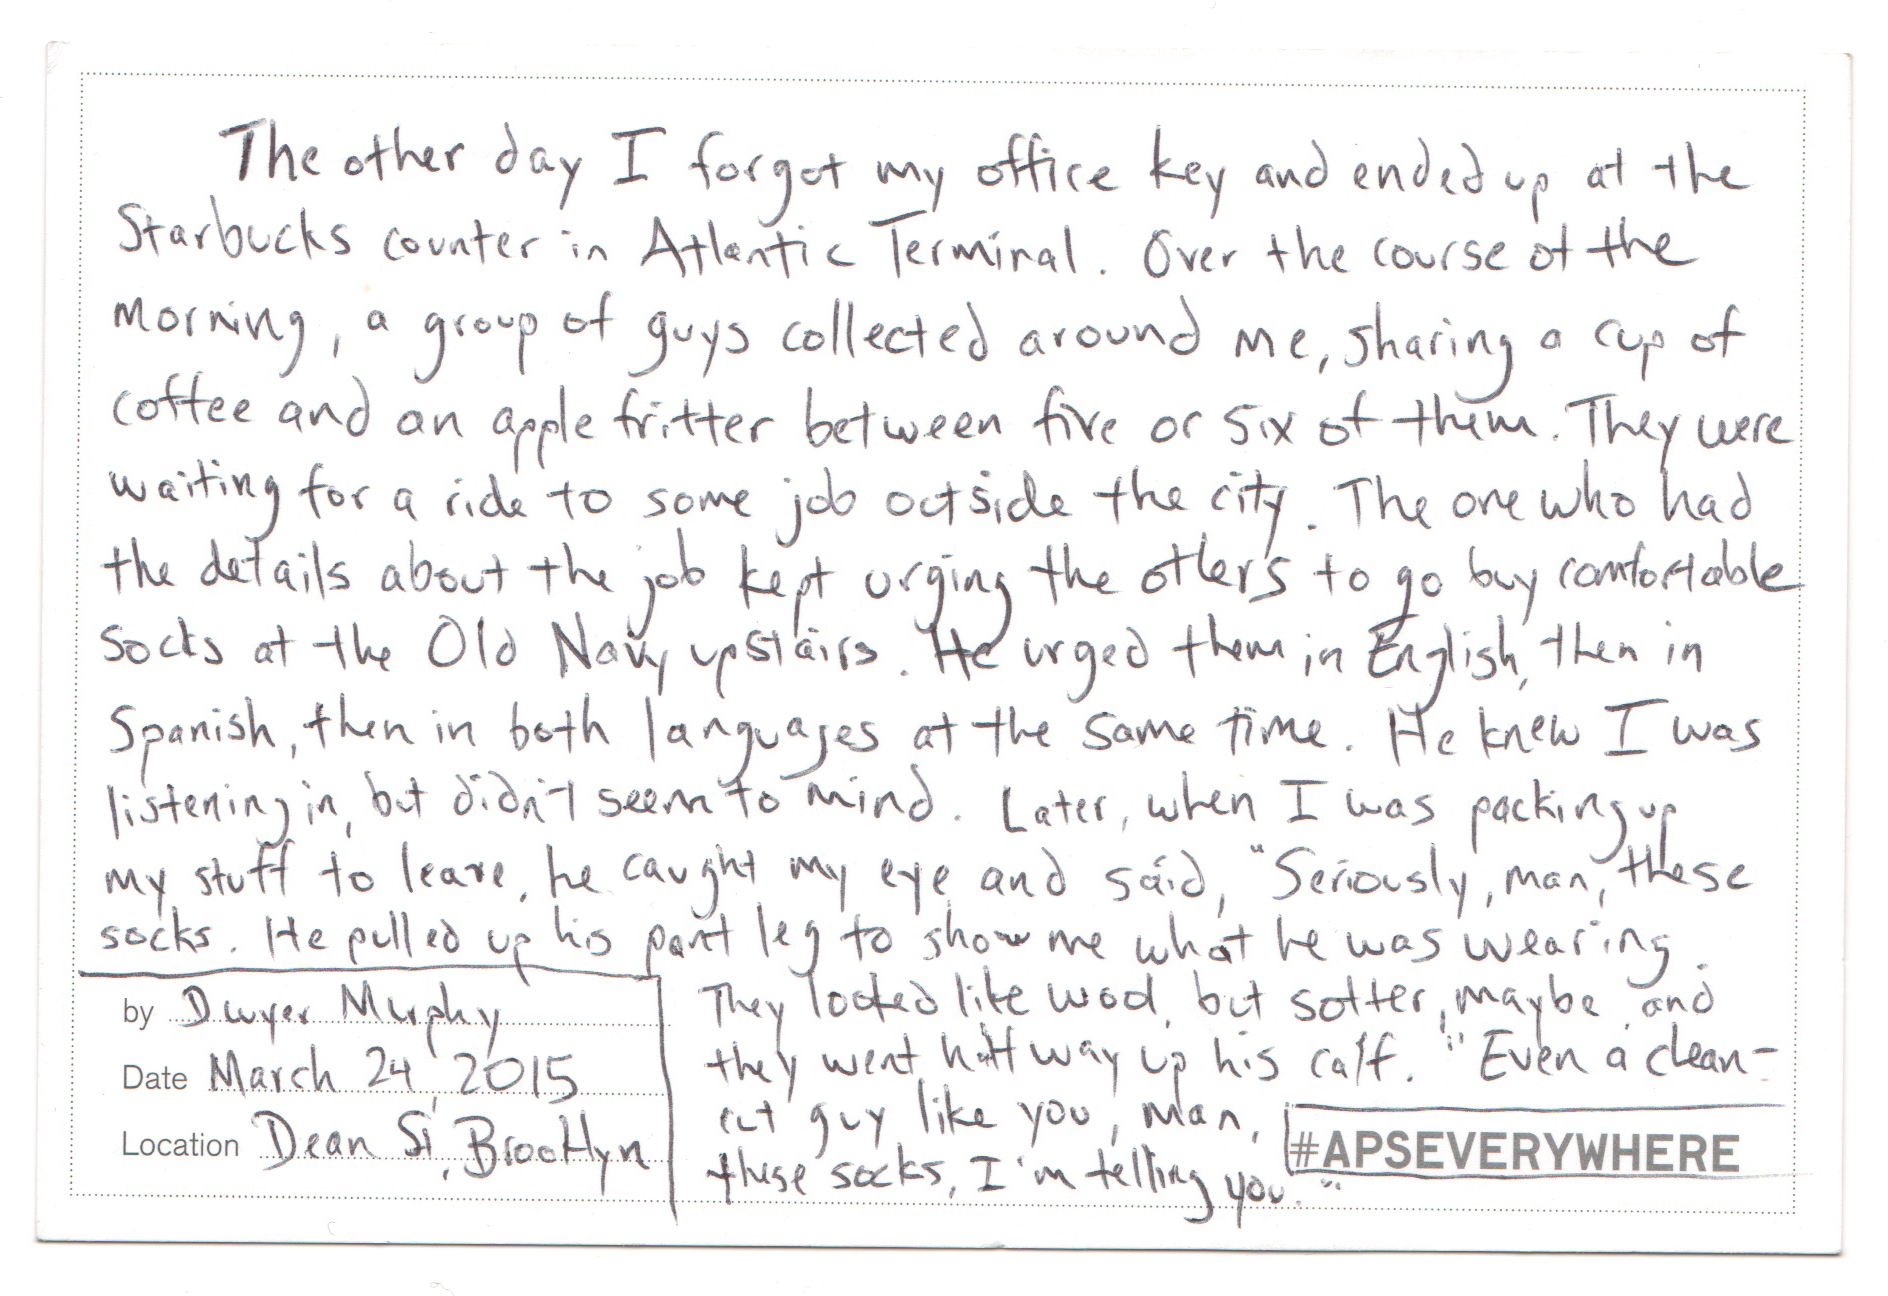 The other day I forgot my office key and ended up at the
Starbucks counter in Atlantic Terminal. Over the course of the
morning, a group of guys collected around me, sharing a cup of
coffee and an apple fritter between five or six of them. They were
waiting for a ride to some job outside the city. The one who had
the details about the job kept urging the others to go buy comfortable
socks at the Old Navy upstairs. He urged them in English, then in
Spanish, then in both languages at the same time. He knew I was
listening in, but didn't seem to mind. Later, when I was packing up
my stuff to leave, he caught my eye and said, "Seriously, man, these
socks. He pulled up his pant leg to show me what he was wearing.
They looked like wool, but softer, maybe, and
they went halfway up his calf. "Even a clean-
cut guy like you, man,
these socks, I'm telling you."
by Dwyer Murphy
Date March 24, 2015
Location Dean St, Brooklyn
#APSEVERYWHERE